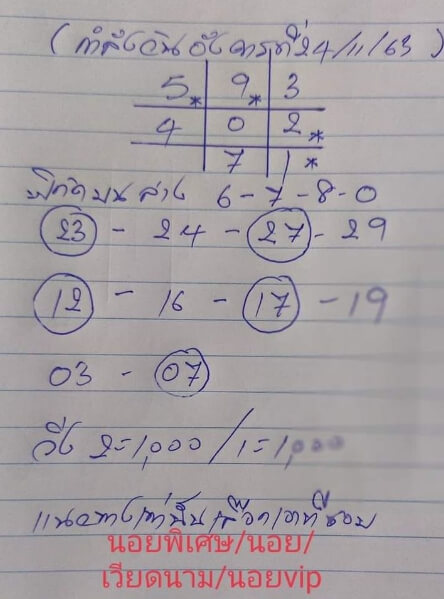 (กำลังวันอังคารที่24/11/63)
5* 9* 3
4 0 2*
7 1*
พิกัดบนล่าง 6-7-8-0
23 - 24 - 27 - 29
12 - 16 - 17 - 19
03 - 07
วิ่ง 2=1,000/1=1,000
แนวทางเท่านั้นเลือกเอาที่ชอบ
นอยพิเศษ/นอย/
เวียดนาม/นอยvip